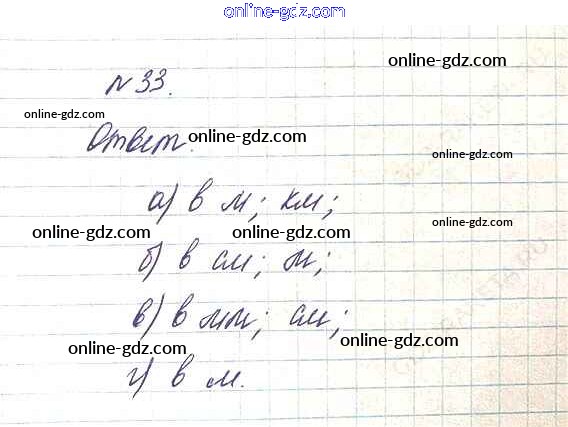 online-gdz.com
online-gdz.com
N 33.
online-gdz.com
Ответ.
online-gdz.com
online-gdz.com
а) в м; км;
online-gdz.com
online-gdz.com
б) в см; м;
в) в мм; см;
online-gdz.com
online-gdz.com
г) в м.